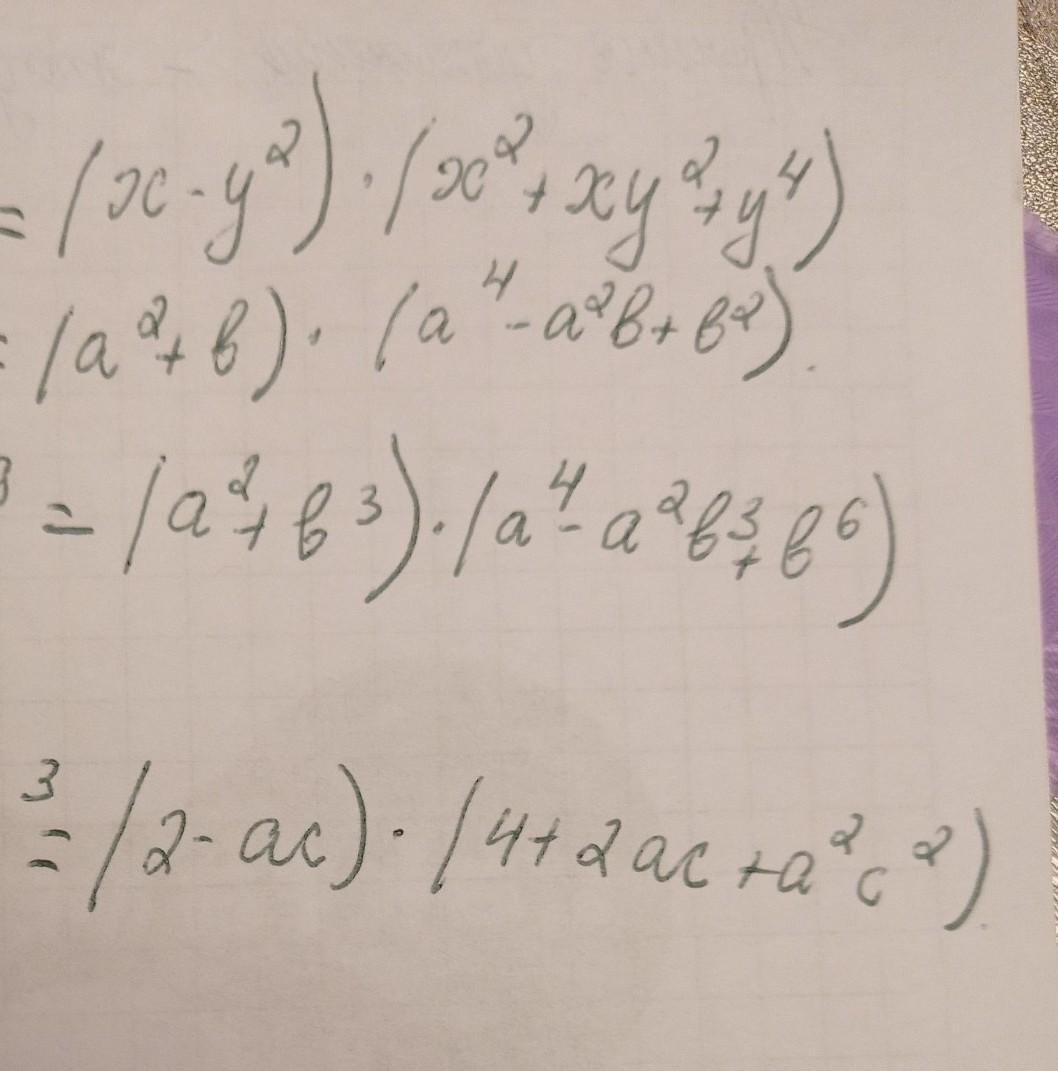 = (x - y²) · (x² + xy² + y⁴)
= (a² + в) · (a⁴ - a²в + в²).
³ = (a² + в³) · (a⁴ - a²в³ + в⁶)
³ = (2 - ac) · (4 + 2ac + a²c²).